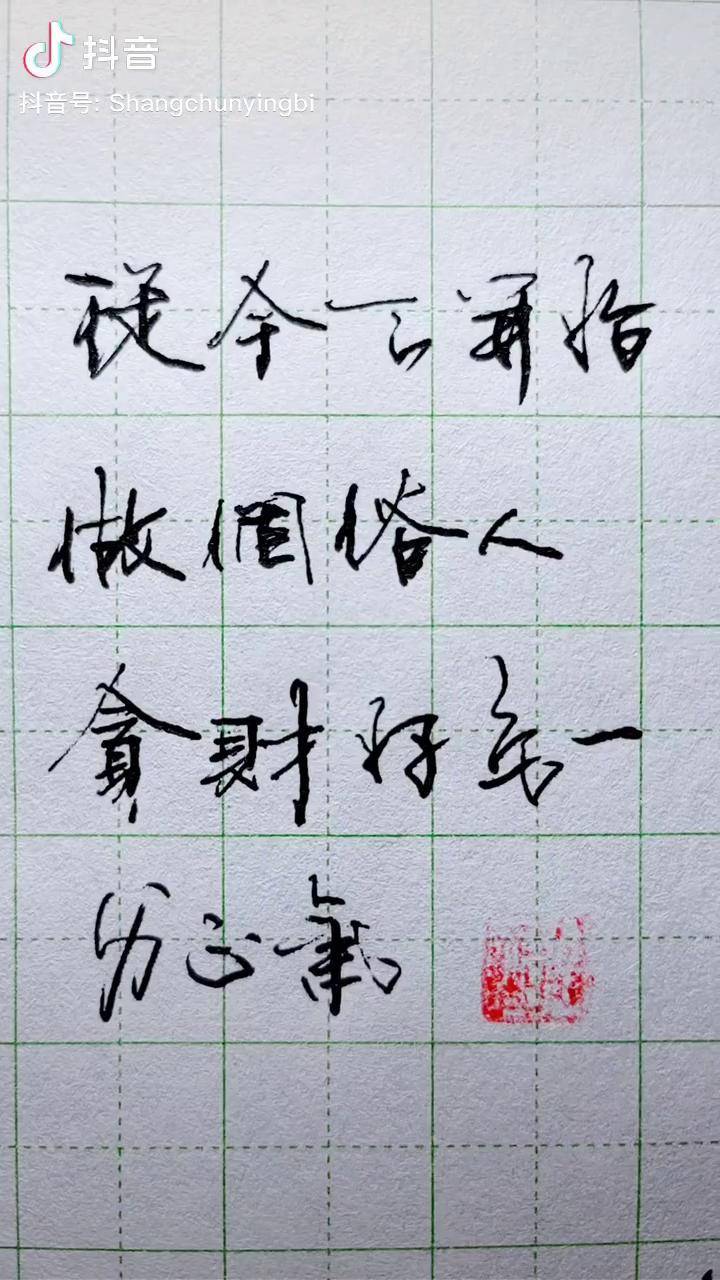 抖音
抖音号: Shangchunyingbi
從今天開始
做個俗人
貪財好色一
身正氣